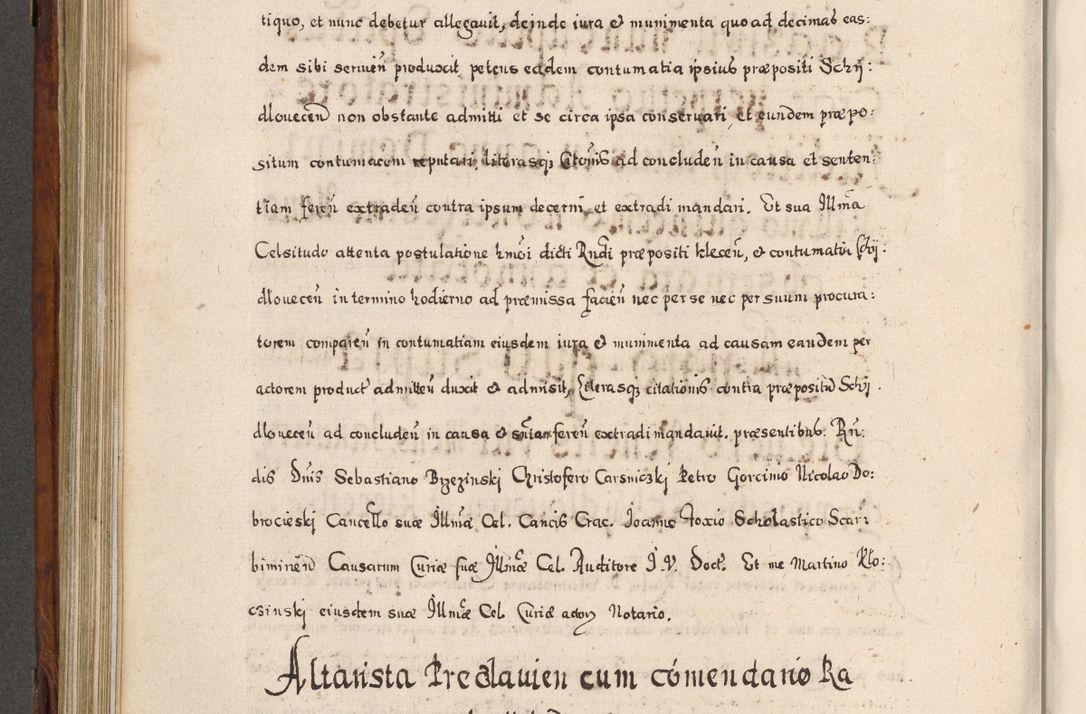 tiquo, et nunc debetur allegavit, deinde iura et munimenta quo ad decimas eas:
dem sibi servien̄ produxit, petens eadem contumatia ipsius præpositi Schÿ:
dlovecen̄ non obstante admitti et se circa ipsa conservari, et eundem præpo:
situm contumacem reputari, literasq; Citōnis ad concluden̄ in causa et senten:
tiam feren̄ extraden̄ contra ipsum decerni et extradi mandari. Et sua Illm̄a
Celsitudo attenta postulatione hmōi dicti Rn̄di præpositi klecen̄, et contumatia Schÿ:
dlovecen̄ in termino hodierno ad præmissa facien̄ nec per se nec per suum procura:
torem comparen̄ in contumatiam eiusdem iura et munimenta ad causam eandem per
actorem product̄ admitten̄ duxit et admisit, Literasq; citationis contra præpositū Schÿ.
dlovecen̄ ad concluden̄ in causa et sn̄iam feren̄ extradi mandavit. præsentibus. Rn̄:
dis Dnis Sebastiano Brzezinski Christofero Carsniczkj Petro Gorcinio Nicolao Do:
brocieskj Cancello suæ Illmæ Cel. Cancis Crac. Joanne Foxio Scholastico Scar:
bimiren̄ Causarum Curiæ suæ Illmæ Cel. Auditore J. V. Doct. Et me Martino Kło:
czinskj eiusdem suæ Illmæ Cel. Curiæ actorum Notario.
Altarista Preclavien cum comendario Ra